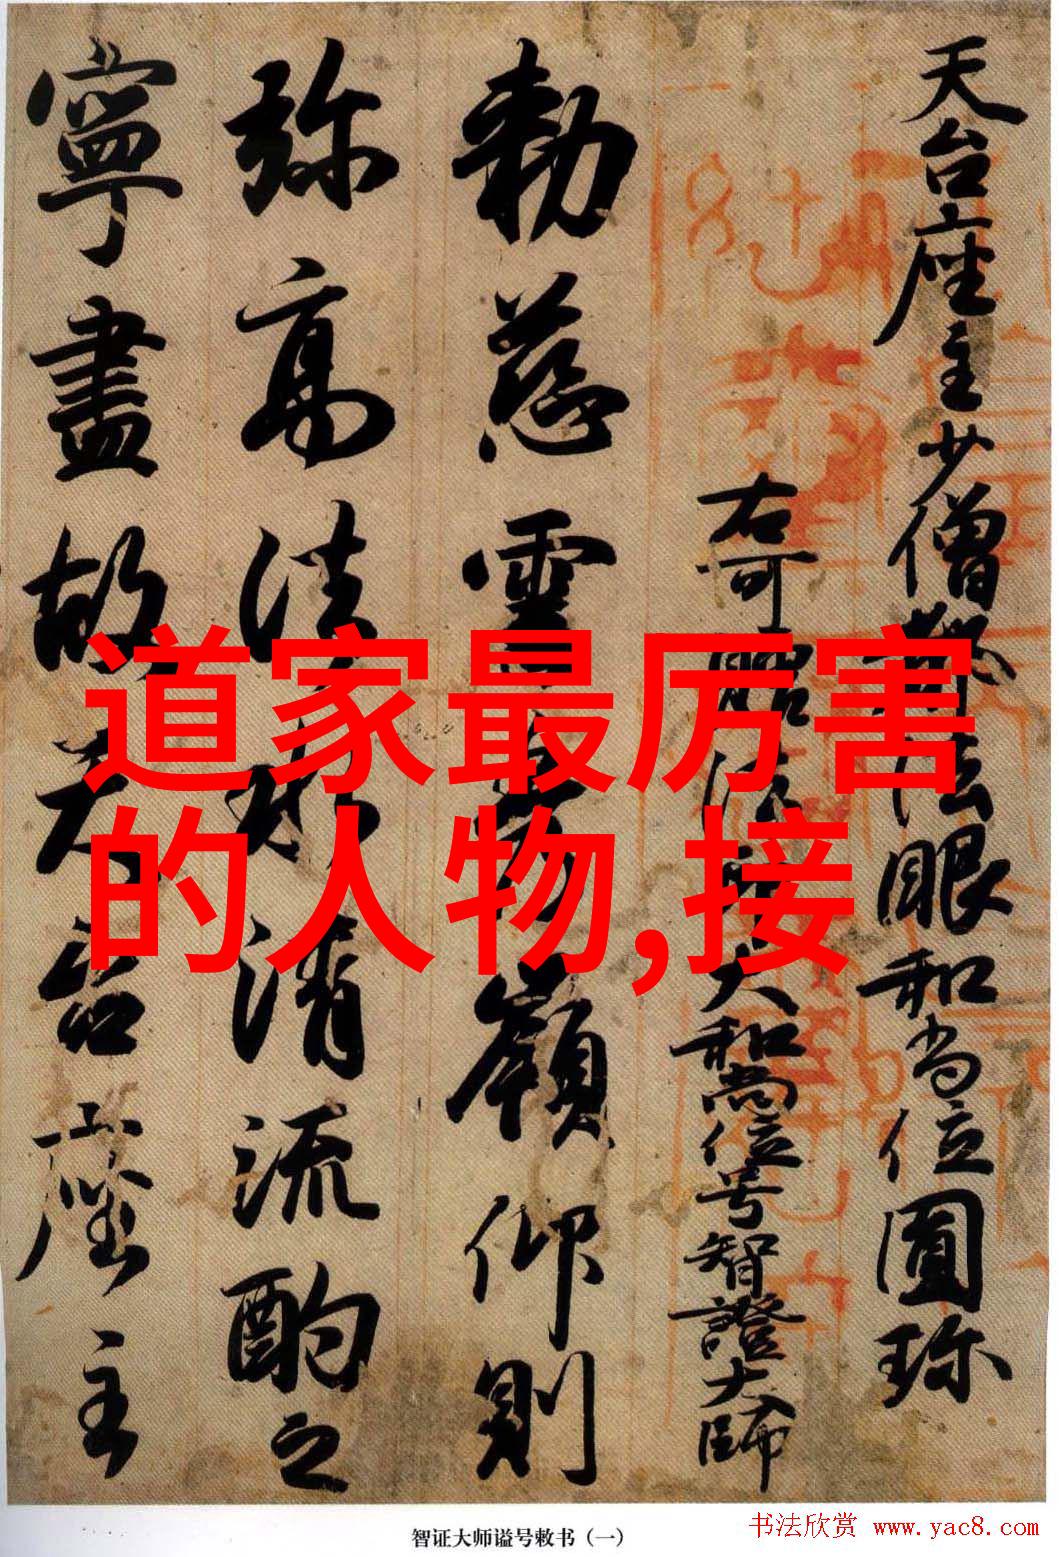 天台座主少僧都法眼和尚位圓珎
右可贈法印大和尚位号智證大師
勅慈雲秀嶺仰則
弥高法水清流酌之
寧盡故天台座主
道家最厉害
的人物,接
智证大师谥号敕书（一）
书法欣赏 www.yac8.com